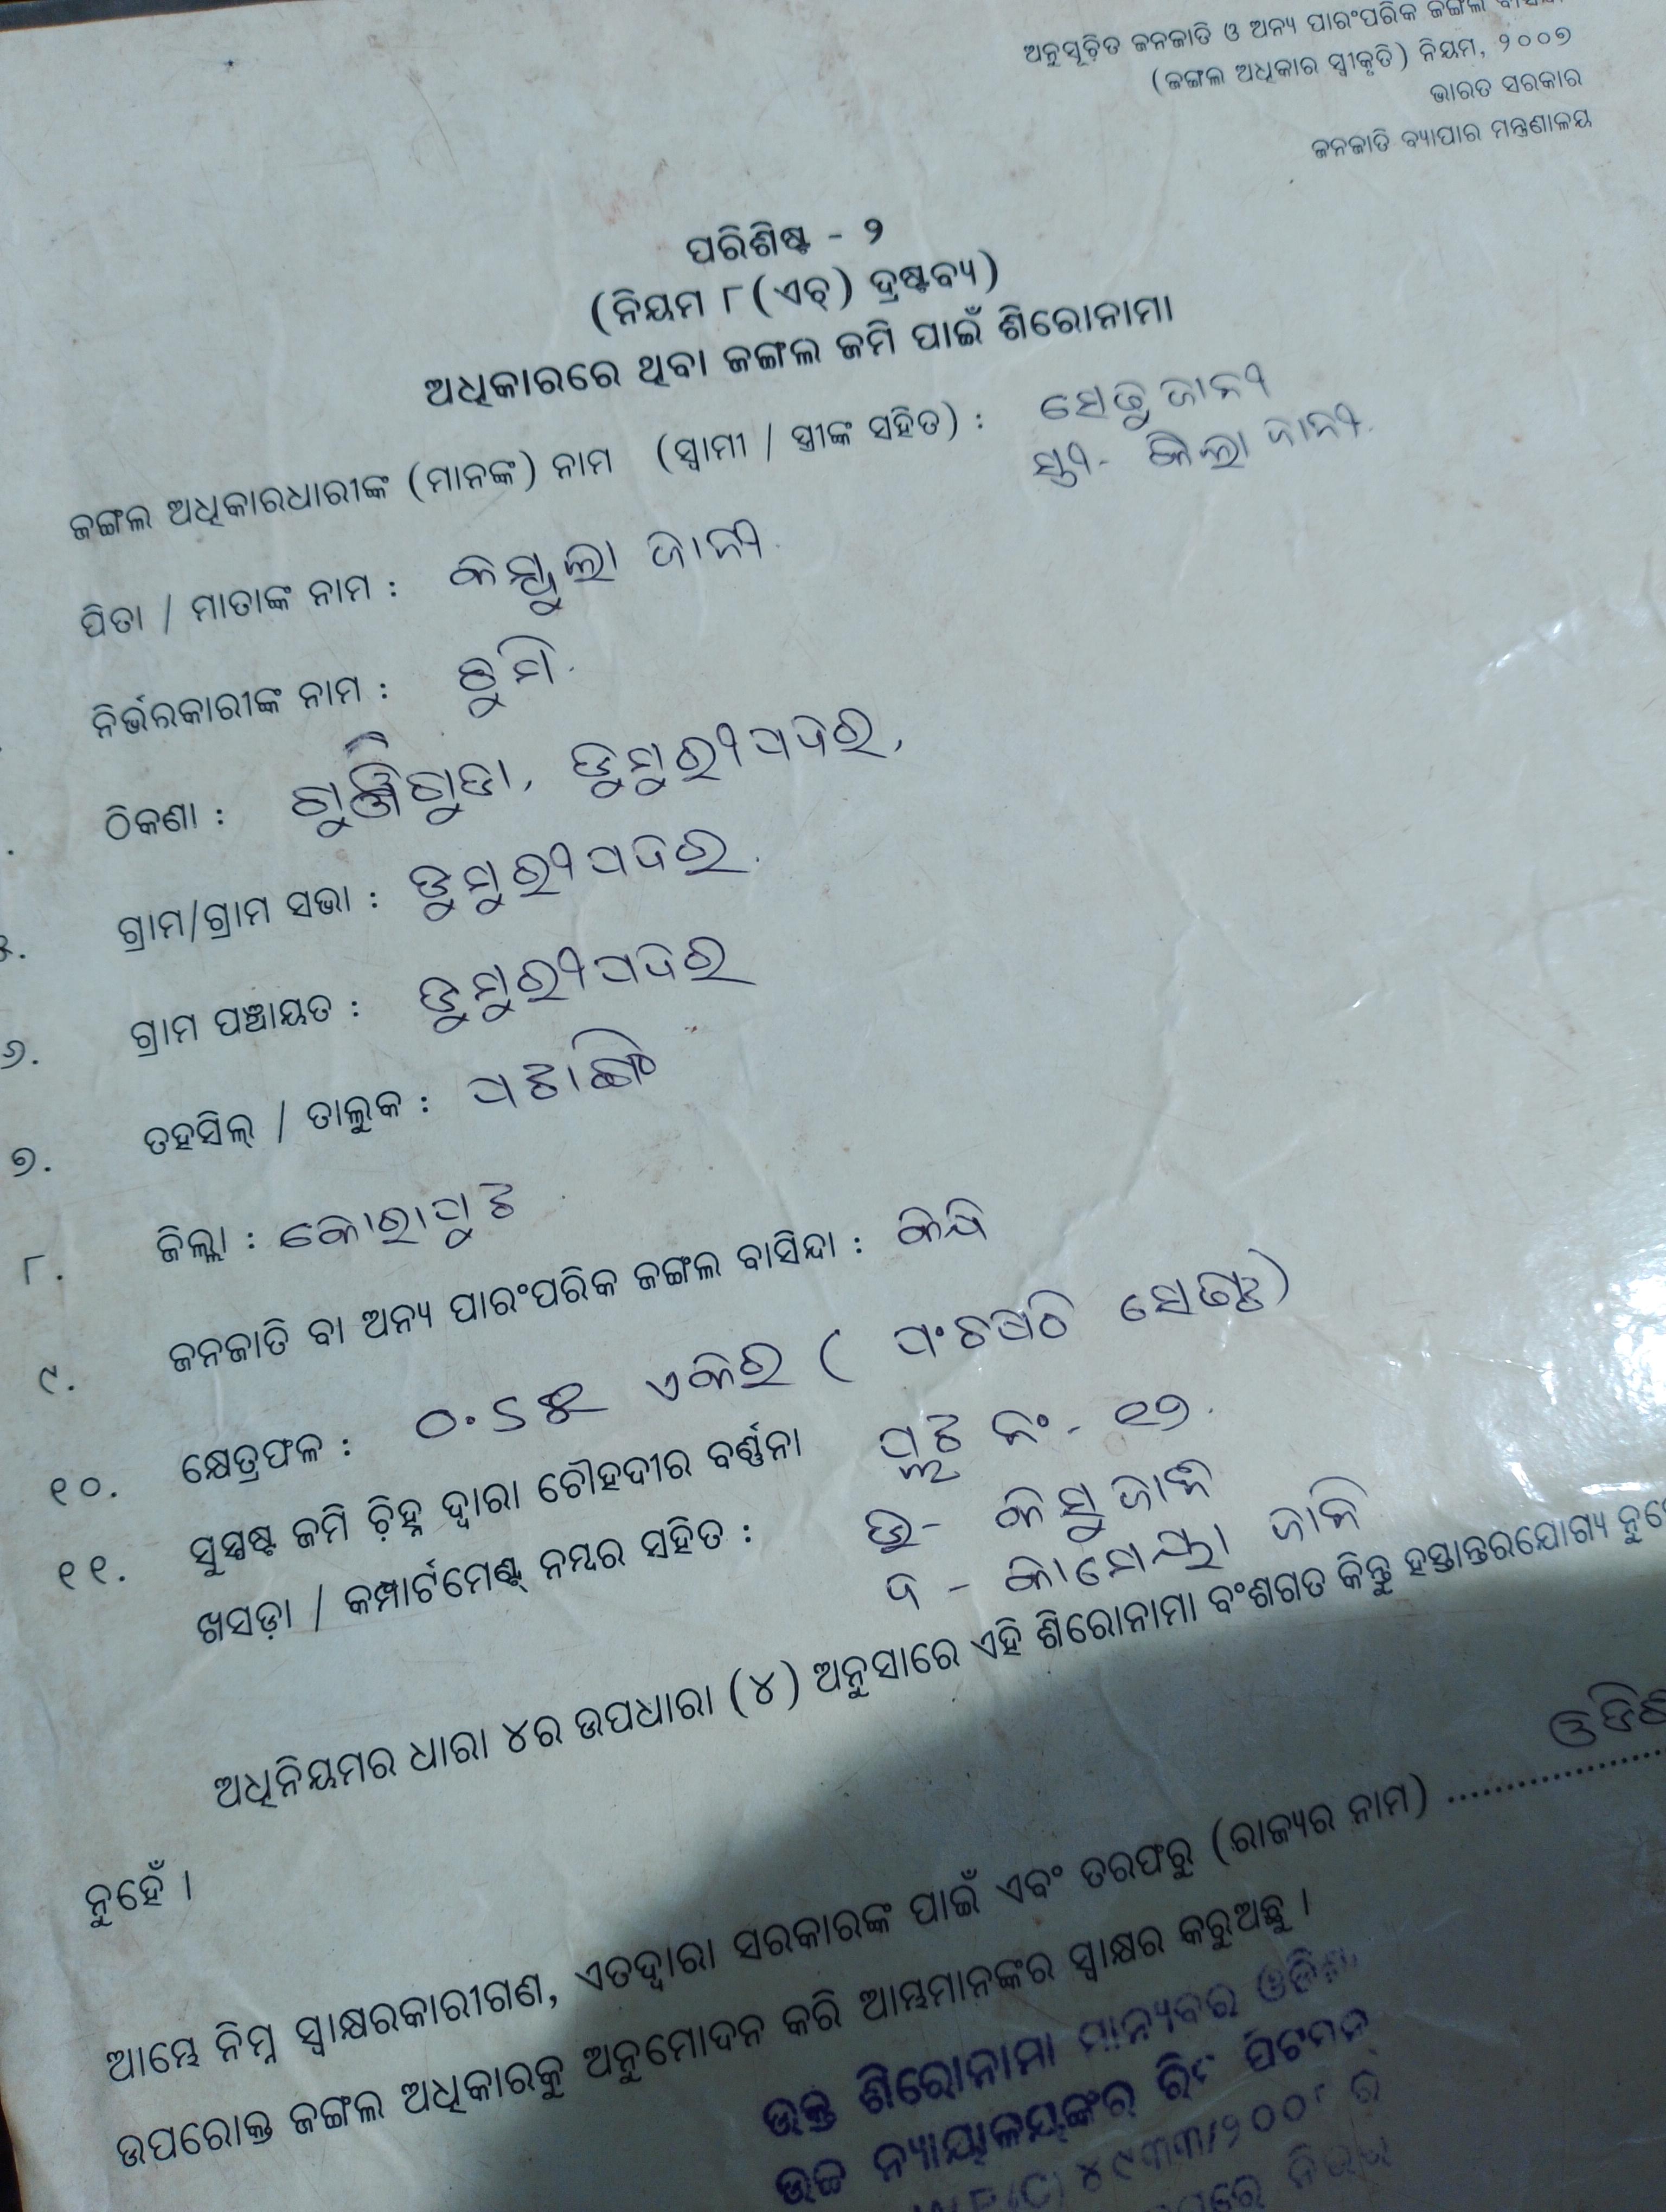 ଅନୁସୂଚିତ ଜନଜାତି ଓ ଅନ୍ୟ ପାରଂପରିକ ଜଙ୍ଗଲ
(ଜଙ୍ଗଲ ଅଧିକାର ସ୍ୱୀକୃତି) ନିୟମ, ୨୦୦୭
ଭାରତ ସରକାର
ଜନଜାତି ବ୍ୟାପାର ମନ୍ତ୍ରଣାଳୟ
ପରିଶିଷ୍ଟ - ୨
(ନିୟମ ୮(ଏଚ୍) ଦ୍ରଷ୍ଟବ୍ୟ)
ଅଧିକାରରେ ଥିବା ଜଙ୍ଗଲ ଜମି ପାଇଁ ଶିରୋନାମା
ଜଙ୍ଗଲ ଅଧିକାରଧାରୀଙ୍କ (ମାନଙ୍କ) ନାମ (ସ୍ୱାମୀ / ସ୍ତ୍ରୀଙ୍କ ସହିତ) : ସେତୁ ଜାନୀ
ସ୍ତ୍ରୀ- ଜାନୀ
ପିତା / ମାତାଙ୍କ ନାମ : ଜାନୀ
ନିର୍ଭରକାରୀଙ୍କ ନାମ :
ଠିକଣା : ଗୁଞ୍ଜିଗୁଡା, ଡୁମୁରୀପଦର,
୫. ଗ୍ରାମ/ଗ୍ରାମ ସଭା : ଡୁମୁରୀପଦର
୬. ଗ୍ରାମ ପଞ୍ଚାୟତ : ଡୁମୁରୀପଦର
୭. ତହସିଲ୍ / ତାଲୁକ : ପଟାଙ୍ଗି
୮. ଜିଲ୍ଲା : କୋରାପୁଟ
୯. ଜନଜାତି ବା ଅନ୍ୟ ପାରଂପରିକ ଜଙ୍ଗଲ ବାସିନ୍ଦା : କନ୍ଧ
୧୦. କ୍ଷେତ୍ରଫଳ : ଏକର (
୧୧. ସୁସ୍ପଷ୍ଟ ଜମି ଚ଼ିହ୍ନ ଦ୍ୱାରା ଚୌହଦୀର ବର୍ଣ୍ଣନା ପ୍ଲଟ ନଂ - ୧୭
ଖସଡ଼ା / କମ୍ପାର୍ଟମେଣ୍ଟ୍ ନମ୍ବର ସହିତ : ଉ- ଜାନି
ଦ - ଜାନି
ଅଧିନିୟମର ଧାରା ୪ର ଉପଧାରା (୪) ଅନୁସାରେ ଏହି ଶିରୋନାମା ବଂଶଗତ କିନ୍ତୁ ହସ୍ତାନ୍ତରଯୋଗ୍ୟ
ନୁହେଁ ।
ଆମ୍ଭେ ନିମ୍ନ ସ୍ୱାକ୍ଷରକାରୀଗଣ, ଏତଦ୍ୱାରା ସରକାରଙ୍କ ପାଇଁ ଏବଂ ତରଫରୁ (ରାଜ୍ୟର ନାମ) ....................
ଉପରୋକ୍ତ ଜଙ୍ଗଲ ଅଧିକାରକୁ ଅନୁମୋଦନ କରି ଆମ୍ଭମାନଙ୍କର ସ୍ୱାକ୍ଷର କରୁଅଛୁ ।
ଉକ୍ତ ଶିରୋନାମା ମାନ୍ୟବର
ଉଚ୍ଚ ନ୍ୟାୟାଳୟଙ୍କର ରିଟ ପିଟିସନ୍